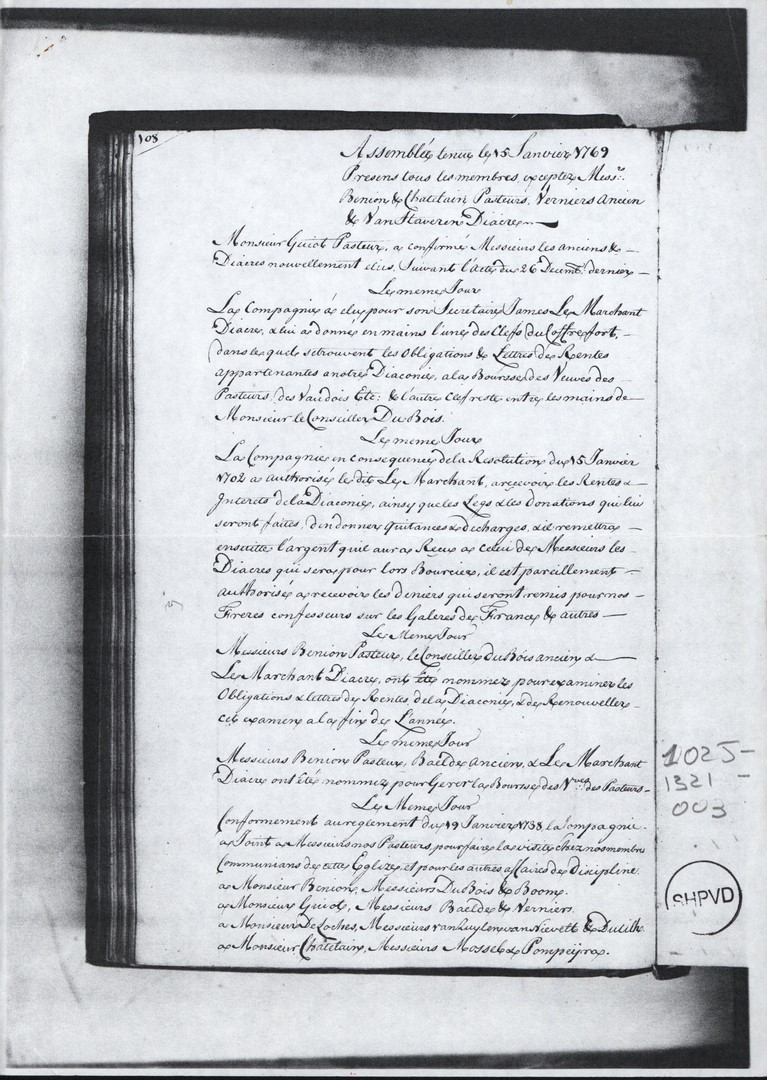 108
Assemblée tenue le 15 Janvier 1769
Presens tous les membres, exceptez Mess.rs
Benion & Chatelain, Pasteurs, Verniers Ancien
& Van Staveren Diacre
Monsieur Guiot Pasteur, a confirmé Messieurs les Anciens &
Diacres nouvellement elus, Suivant l'Acte du 26 Decemb. dernier
Le meme Jour
La Compagnie a elu pour son Secretaire James Le Marchant
Diacre, & lui a donné en mains l'une des Clefs du Coffre fort,
dans lequel se trouvent les Obligations & Lettres de Rentes
appartenantes a notre Diaconie, a la Boursse des Veuves des
Pasteurs, des Vaudois Etc: & l'autre Clef reste entre les mains de
Monsieur le Conseiller Du Bois.
Le meme Jour
La Compagnie en consequence de la Resolution du 15 Janvier
1702 a authorisé le dit Le Marchant, a recevoir les Rentes &
Interets de la Diaconie, ainsy que les Legs & les Donations qui lui
seront faites, d'en donner Quitances & decharges, & il remettra
ensuitte l'argent qu'il aura Receu a celui de Messieurs les
Diacres qui sera pour lors Boursier, il est pareillement
Authorisé a recevoir les deniers qui seront remis pour nos
Freres confesseurs sur les Galeres de France & autres
Le Meme Jour
Messieurs Benion Pasteur, le Conseiller du Bois ancien &
Le Marchant Diacre, ont été nommez pour examiner les
Obligations & lettres de Rentes, de la Diaconie, & de Renouveller
cet examen a la fin de L'année.
Le meme Jour
Messieurs Benion Pasteur, Baelde Ancien, & Le Marchant
Diacre ont été nommez pour Gerer la Boursse des V.ves des Pasteurs
Le Meme Jour
Conformement au reglement du 19 Janvier 1738, la Compagnie
a Joint a Messieurs nos Pasteurs, pour faire la visite chez nos membres
Communians de cette Eglize, et pour les autres affaires de Discipline.
a Monsieur Benion, Messieurs Du Bois & Boon.
a Monsieur Guiot, Messieurs Baelde & Verniers.
a Monsieur De Loches, Messieurs van Nievelt & Dutilh
a Monsieur Chatelain, Messieurs Mosse & Pompeyra.
1025-
1321-
003
SHPVD